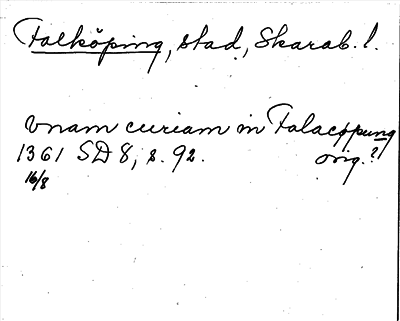 Falköping, stad, Skarab. l.
vnam curiam in Falacøpung
1361 SD 8, s. 92. orig.?
16/8